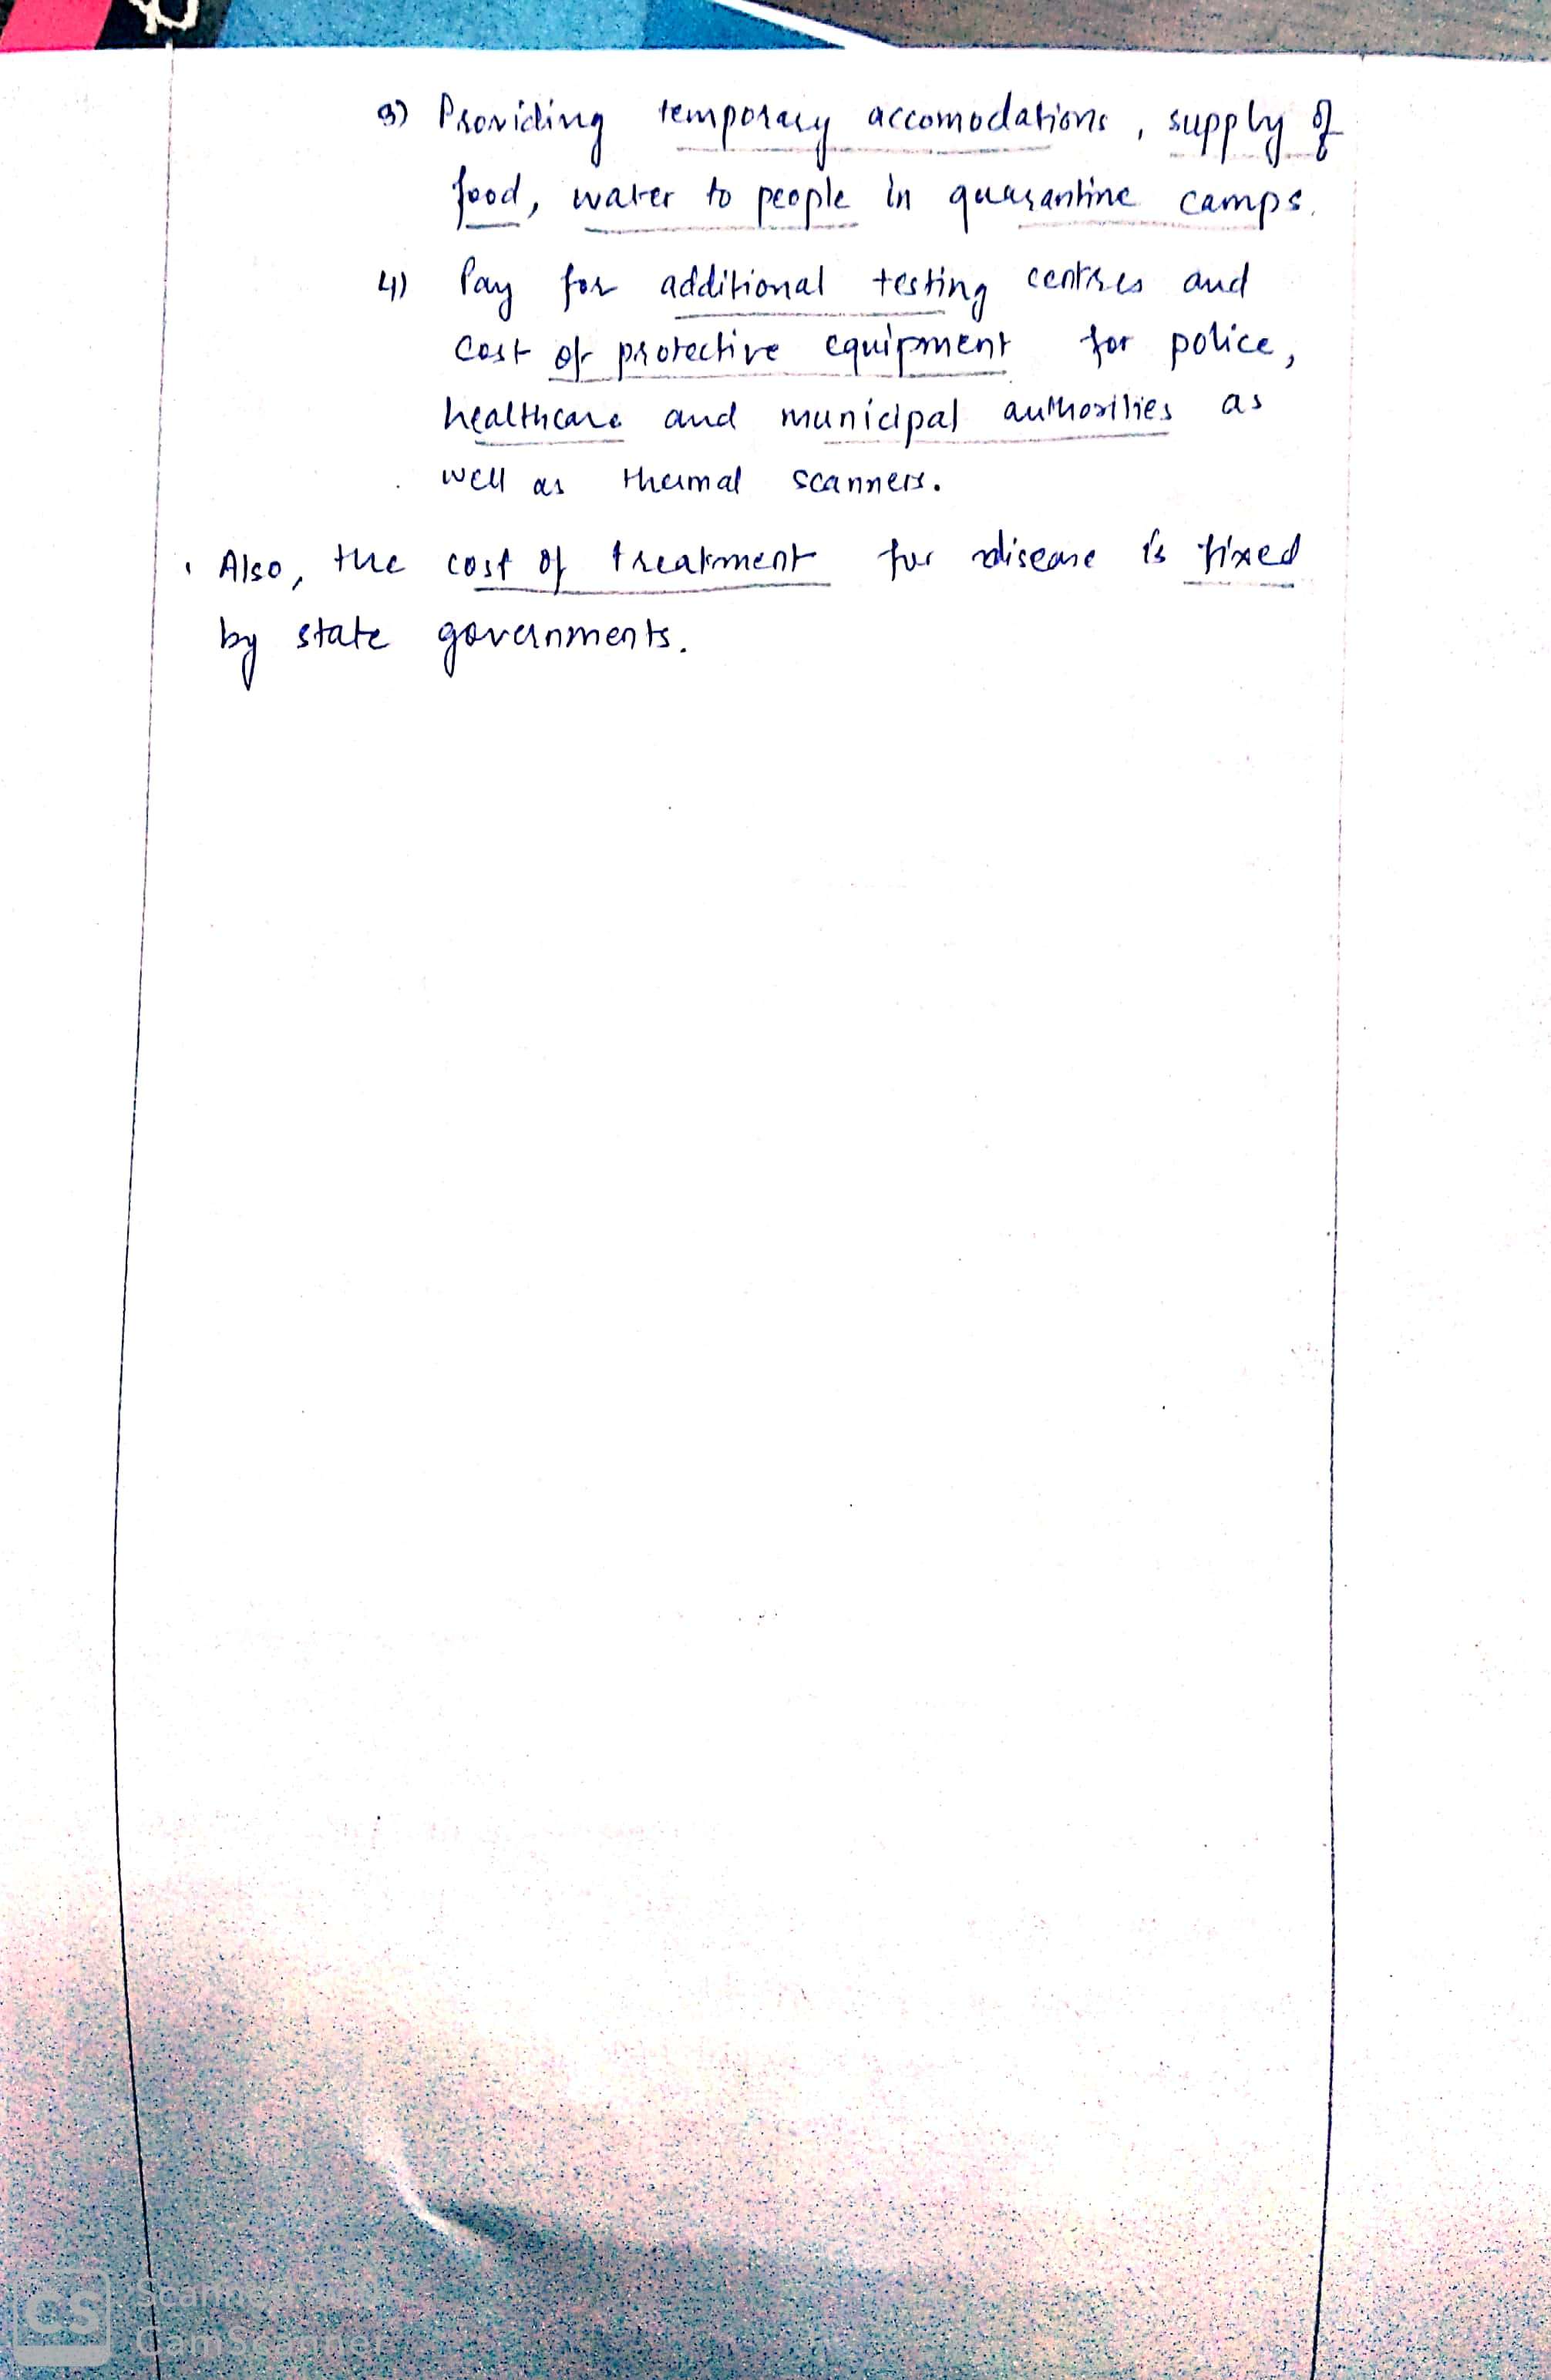 3) Providing temporary accomodations, supply of
food, water to people in quarantine camps.
4) Pay for additional testing centres and
cost of protective equipment for police,
healthcare and municipal authorities as
well as thermal scanners.
• Also, the cost of treatment for disease is fixed
by state governments.
CS
Scanned with
CamScanner